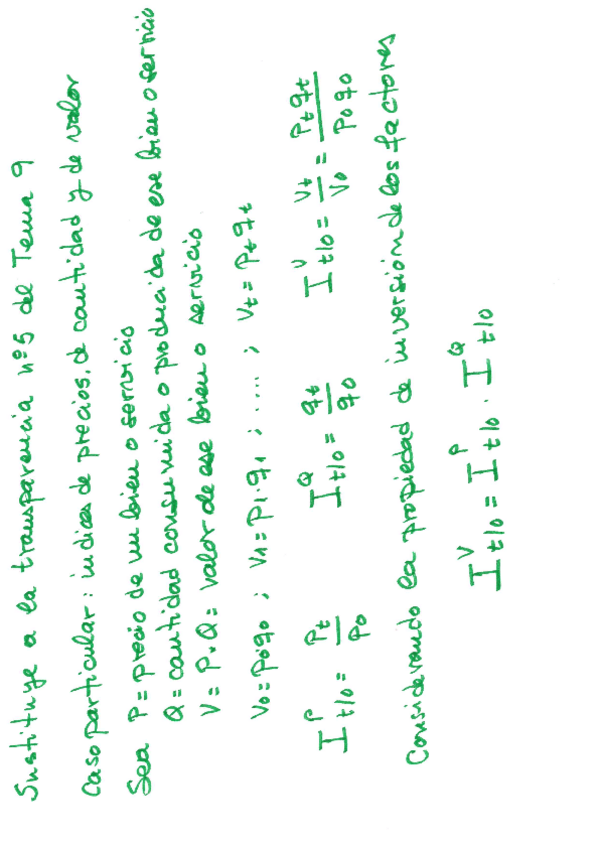 Sustituye a la transparencia nº 5 del Tema 9
Caso particular: índices de precios, de cantidad y de valor
Sea P = precio de un bien o servicio
Q = cantidad consumida o producida de ese bien o servicio
V = P.Q = valor de ese bien o servicio
V₀ = p₀q₀ ; V₁ = p₁.q₁ ; .... ; Vt = Pt qt
I^P t/0 = Pt/P₀ I^Q t/0 = qt/q₀ I^V t/0 = Vt/V₀ = Pt qt/P₀ q₀
Considerando la propiedad de inversión de los factores
I^V t/0 = I^P t/0 . I^Q t/0